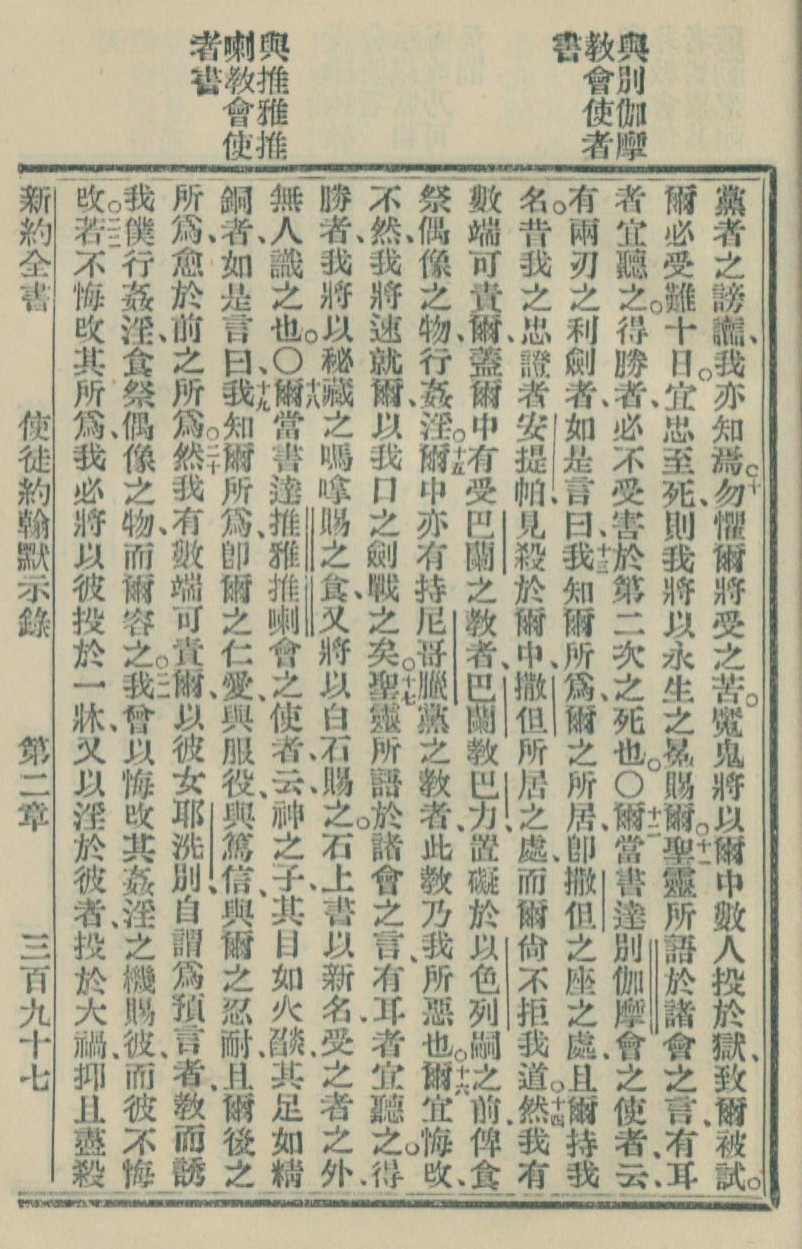 與別伽摩
教會使者
書
與推雅推
喇教會使
者書
黨者之謗讟、我亦知焉。十勿懼爾將受之苦。魔鬼將以爾中數人投於獄、致爾被試。
爾必受難十日。宜忠至死、則我將以永生之冕賜爾。十一聖靈所語於諸會之言、有耳
者宜聽之。得勝者、必不受害於第二次之死也。〇十二爾當書達別伽摩會之使者云、
有兩刃之利劍者、如是言曰、十三我知爾所爲、爾之所居、卽撒但之座之處、且爾持我
名。昔我之忠證者安提帕、見殺於爾中、撒但所居之處、而爾尙不拒我道。十四然我有
數端可責爾、蓋爾中有受巴蘭之教者、巴蘭教巴力、置礙於以色列嗣之前、俾食
祭偶像之物、行姦淫。十五爾中亦有持尼哥臘黨之教者、此教乃我所惡也。十六爾宜悔改、
不然、我將速就爾、以我口之劍戰之矣。十七聖靈所語於諸會之言、有耳者宜聽之。得
勝者、我將以秘藏之嗎嗱賜之食、又將以白石賜之。石上書以新名、受之者之外、
無人識之也。〇十八爾當書達推雅推喇會之使者云、神之子、其目如火燄、其足如精
銅者、如是言曰、十九我知爾所爲、卽爾之仁愛、與服役、與篤信、與爾之忍耐、且爾後之
所爲、愈於前之所爲。二十然我有數端可責爾、以彼女耶洗別、自謂爲預言者、教而誘
我僕行姦淫、食祭偶像之物、而爾容之。二一我曾以悔改其姦淫之機賜彼、而彼不悔
改。二二若不悔改其所爲、我必將以彼投於一牀、又以淫於彼者、投於大禍、抑且盡殺
新約全書　使徒約翰默示錄　第二章　三百九十七